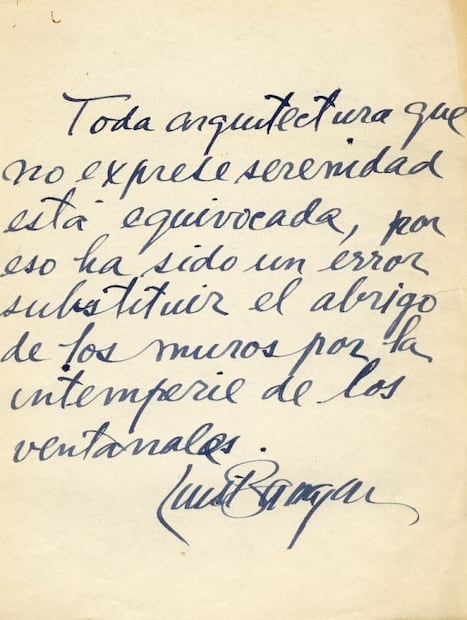 Toda arquitectura que
no exprese serenidad
está equivocada, por
eso ha sido un error
substituir el abrigo
de los muros por la
intemperie de los
ventanales.
Luis Barragan